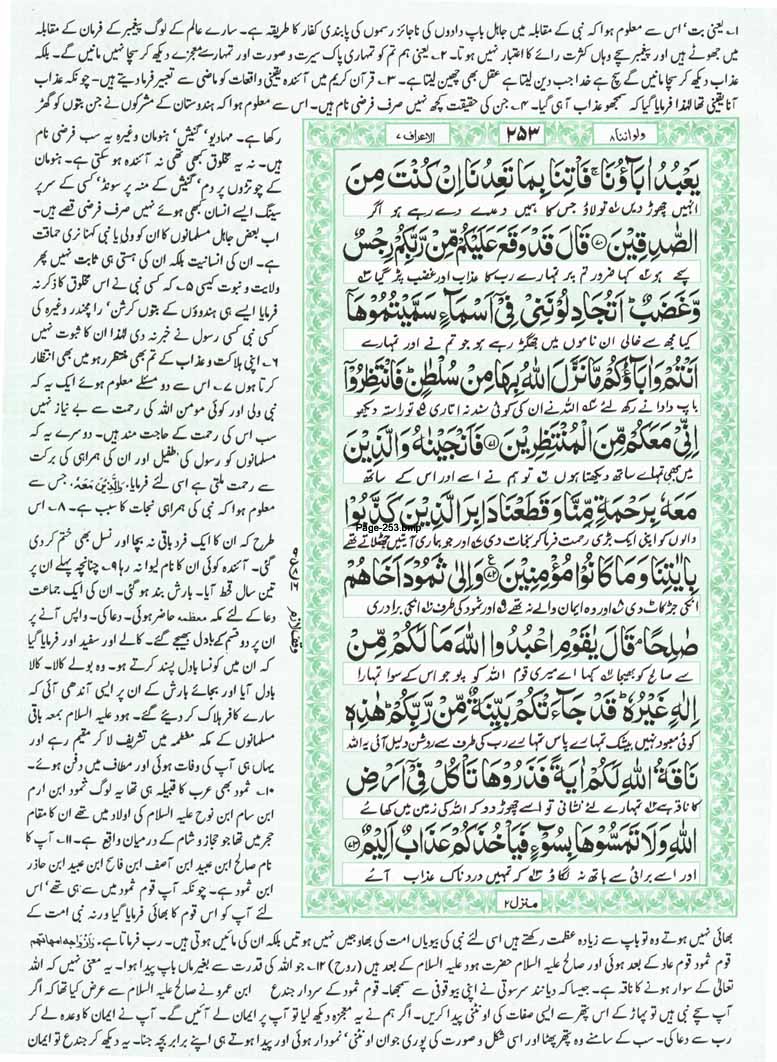 ۱۔ یعنی بت' اس سے معلوم ہوا کہ نبی کے مقابلہ میں جاہل باپ دادوں کی ناجائز رسموں کی پابندی کفار کا طریقہ ہے۔ سارے عالم کے لوگ پیغمبر کے فرمان کے مقابلہ
میں جھوٹے ہیں اور پیغمبر سچے وہاں کثرت رائے کا اعتبار نہیں ہوتا۔ ۲۔ یعنی ہم تم کو تمہاری پاک سیرت و صورت اور تمہارے معجزے دیکھ کر سچا نہیں مانیں گے۔ بلکہ
عذاب دیکھ کر سچا مانیں گے سچ ہے خدا جب دین لیتا ہے عقل بھی چھین لیتا ہے۔ ۳۔ قرآن کریم میں آئندہ یقینی واقعات کو ماضی سے تعبیر فرما دیتے ہیں۔ چونکہ عذاب
آنا یقینی تھا لہٰذا فرمایا گیا کہ سمجھو عذاب آ ہی گیا۔ ۴۔ جن کی حقیقت کچھ نہیں صرف فرضی نام ہیں۔ اس سے معلوم ہوا کہ ہندوستان کے مشرکوں نے جن بتوں کو گھڑ
رکھا ہے۔ مہادیو' گنیش' ہنومان وغیرہ یہ سب فرضی نام
ہیں۔ نہ یہ مخلوق کبھی تھی نہ آئندہ ہو سکتی ہے۔ ہنومان
کے چوتڑوں پر دم' گنیش کے منہ پر سونڈ' کسی کے سر پر
سینگ ایسے انسان کبھی ہوئے نہیں صرف فرضی قصے ہیں۔
اب بعض جاہل مسلمانوں کا ان کو ولی یا نبی کہنا نری حماقت
ہے۔ ان کی انسانیت بلکہ ان کی ہستی ہی ثابت نہیں پھر
ولایت و نبوت کیسی ۵۔ کہ کسی نبی نے اس مخلوق کا ذکر نہ
فرمایا ایسے ہی ہندوؤں کے بتوں کرشن' رامچندر وغیرہ کی
کسی نبی کسی رسول نے خبر نہ دی لہٰذا ان کا ثبوت نہیں
۶۔ اپنی ہلاکت و عذاب کے تم بھی منتظر رہو میں بھی انتظار
کرتا ہوں ۷۔ اس سے دو مسئلے معلوم ہوئے ایک یہ کہ
نبی ولی اور کوئی مومن اللہ کی رحمت سے بے نیاز نہیں
سب اس کی رحمت کے حاجت مند ہیں۔ دوسرے یہ کہ
مسلمانوں کو رسول کی طفیل اور ان کی ہمراہی کی برکت
سے رحمت ملتی ہے اسی لئے فرمایا۔ وَالَّذِیْنَ مَعَہٗ، جس سے
معلوم ہوا کہ نبی کی ہمراہی نجات کا سبب ہے۔ ۸۔ اس
طرح کہ ان کا ایک فرد باقی نہ بچا اور نسل بھی ختم کر دی
گئی۔ آئندہ کوئی ان کا نام لیوا نہ رہا ۹۔ چنانچہ پہلے ان پر
تین سال قحط آیا۔ بارش بند ہو گئی۔ ان کی ایک جماعت
دعا کے لئے مکہ معظمہ حاضر ہوئی۔ دعا کی۔ واپس آنے پر
ان پر دو قسم کے بادل بھیجے گئے۔ کالے اور سفید اور فرمایا گیا
کہ ان میں کونسا بادل پسند کرتے ہو۔ وہ بولے کالا۔ کالا
بادل آیا اور بجائے بارش کے ان پر ایسی آندھی آئی کہ
سارے کافر ہلاک کر دیئے گئے۔ ہود علیہ السلام بمعہ باقی
مسلمانوں کے مکہ معظمہ میں تشریف لا کر مقیم رہے اور
یہاں ہی آپ کی وفات ہوئی اور مطاف میں دفن ہوئے۔
۱۰۔ ثمود بھی عرب کا قبیلہ ہی تھا یہ لوگ ثمود ابن ارم
ابن سام ابن نوح علیہ السلام کی اولاد میں تھے ان کا مقام
حجر میں تھا جو حجاز و شام کے درمیان واقع ہے۔ ۱۱۔ آپ کا
نام صالح ابن عبید ابن آصف ابن فالح ابن عبید ابن حاذر
ابن ثمود ہے۔ چونکہ آپ قوم ثمود میں سے ہی تھے' اس
لئے آپ کو اس قوم کا بھائی فرمایا گیا ورنہ نبی امت کے
ولواننا ۸
۲۵۳
الاعراف ۷
یَعْبُدُ اٰبَآؤُنَا ۚ فَاْتِنَا بِمَا تَعِدُنَاۤ اِنْ كُنْتَ مِنَ
انہیں چھوڑ دیں تو لاؤ جس کا ہمیں وعدے دے رہے ہو اگر
الصّٰدِقِیْنَ ۝۷۰ قَالَ قَدْ وَقَعَ عَلَیْكُمْ مِّنْ رَّبِّكُمْ رِجْسٌ
سچے ہو کہا ضرور تم پر تمہارے رب کا عذاب اور غضب پڑ گیا
وَّغَضَبٌ ؕ اَتُجَادِلُوْنَنِیْ فِیْۤ اَسْمَآءٍ سَمَّیْتُمُوْهَاۤ
کیا مجھ سے خالی ان ناموں میں جھگڑ رہے ہو جو تم نے اور تمہارے
اَنْتُمْ وَاٰبَآؤُكُمْ مَّا نَزَّلَ اللّٰهُ بِهَا مِنْ سُلْطٰنٍ ؕ فَانْتَظِرُوْۤا
باپ دادا نے رکھ لئے ۴ اللہ نے ان کی کوئی سند نہ اتاری ۵ تو راستہ دیکھو
اِنِّیْ مَعَكُمْ مِّنَ الْمُنْتَظِرِیْنَ ۝۷۱ فَاَنْجَیْنٰهُ وَالَّذِیْنَ
میں بھی تمہارے ساتھ دیکھتا ہوں ۶ تو ہم نے اسے اور اس کے ساتھ
مَعَهٗ بِرَحْمَةٍ مِّنَّا وَقَطَعْنَا دَابِرَ الَّذِیْنَ كَذَّبُوْا
Page-253.bmp
والوں کو اپنی ایک بڑی رحمت فرما کر نجات دی ۷ اور جو ہماری آیتیں جھٹلاتے تھے
بِاٰیٰتِنَا وَمَا كَانُوْا مُؤْمِنِیْنَ ۝۷۲ وَاِلٰی ثَمُوْدَ اَخَاهُمْ
انکی جڑ کاٹ دی ۸ اور وہ ایمان والے نہ تھے ۹ اور ثمود کی طرف ۱۰ انکی برادری
صٰلِحًا ۘ قَالَ یٰقَوْمِ اعْبُدُوا اللّٰهَ مَا لَكُمْ مِّنْ
سے صالح کو بھیجا ۱۱ کہا اے میری قوم اللہ کو پوجو اس کے سوا تمہارا
اِلٰهٍ غَیْرُهٗ ؕ قَدْ جَآءَتْكُمْ بَیِّنَةٌ مِّنْ رَّبِّكُمْ ؕ هٰذِهٖ
کوئی معبود نہیں بیشک تمہارے پاس تمہارے رب کی طرف سے روشن دلیل آئی یہ اللہ
نَاقَةُ اللّٰهِ لَكُمْ اٰیَةً فَذَرُوْهَا تَاْكُلْ فِیْۤ اَرْضِ
کا ناقہ ہے ۱۲ تمہارے لئے نشانی تو اسے چھوڑ دو کہ اللہ کی زمین میں کھائے
اللّٰهِ وَلَا تَمَسُّوْهَا بِسُوْٓءٍ فَیَاْخُذَكُمْ عَذَابٌ اَلِیْمٌ ۝۷۳
اور اسے برائی سے ہاتھ نہ لگاؤ کہ تمہیں دردناک عذاب آئے
منزل ۲
بھائی نہیں ہوتے وہ تو باپ سے زیادہ عظمت رکھتے ہیں اسی لئے نبی کی بیویاں امت کی بھاوجیں نہیں ہوتیں بلکہ ان کی مائیں ہوتی ہیں۔ رب فرماتا ہے۔ وازواجه امهاتهم
قوم ثمود قوم عاد کے بعد ہوئی اور صالح علیہ السلام حضرت ہود علیہ السلام کے بعد ہیں (روح) ۱۲۔ جو اللہ کی قدرت سے بغیر ماں باپ پیدا ہوا۔ یہ معنی نہیں کہ اللہ
تعالیٰ کے سوار ہونے کا ناقہ ہے۔ جیسا کہ دیانند سرسوتی نے اپنی بیوقوفی سے سمجھا۔ قوم ثمود کے سردار جندع ابن عمرو نے صالح علیہ السلام سے عرض کیا تھا کہ اگر
آپ سچے نبی ہیں تو پہاڑ کے اس پتھر سے ایسی صفات کی اونٹنی پیدا کریں۔ اگر ہم نے یہ معجزہ دیکھ لیا تو آپ پر ایمان لے آئیں گے۔ آپ نے ایمان کا وعدہ لے کر
رب سے دعا کی۔ سب کے سامنے وہ پتھر پھٹا اور اسی شکل و صورت کی پوری جوان اونٹنی' نمودار ہوئی اور پیدا ہوتے ہی اپنے برابر بچہ جنا۔ یہ دیکھ کر جندع تو ایمان